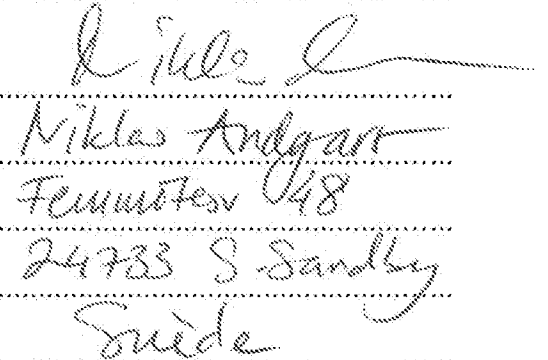 Niklas Andgart
Femmötesv 48
24733 S. Sandby
Suède